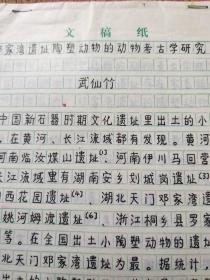 文稿纸
邓家湾遗址陶塑动物的动物考古学研究
武仙竹
中国新石器时期文化遗址里出土的小
，在黄河、长江流域都有发现。黄河
河南临汝煤山遗址[1]、河南伊川马回营
长江流域里有湖南安乡划城岗遗址[3]
西花园遗址[4]、湖北天门邓家湾遗
桃河姆渡遗址[6]、浙江桐乡县罗家
等。在全国出土小陶塑动物的遗址
北天门邓家湾遗址为最。据统计，